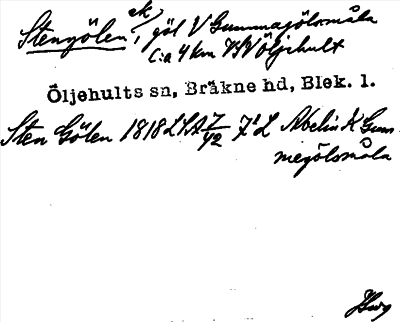 Stengölen, ek/ göl V Gummagölsmåla
c:a 4 km VSV Öljehult
Öljehults sn, Bräkne hd, Blek. l.
Sten Gölen 1818 LSA 7/42 7¹ L Abelin K Gum-
megölsmåla